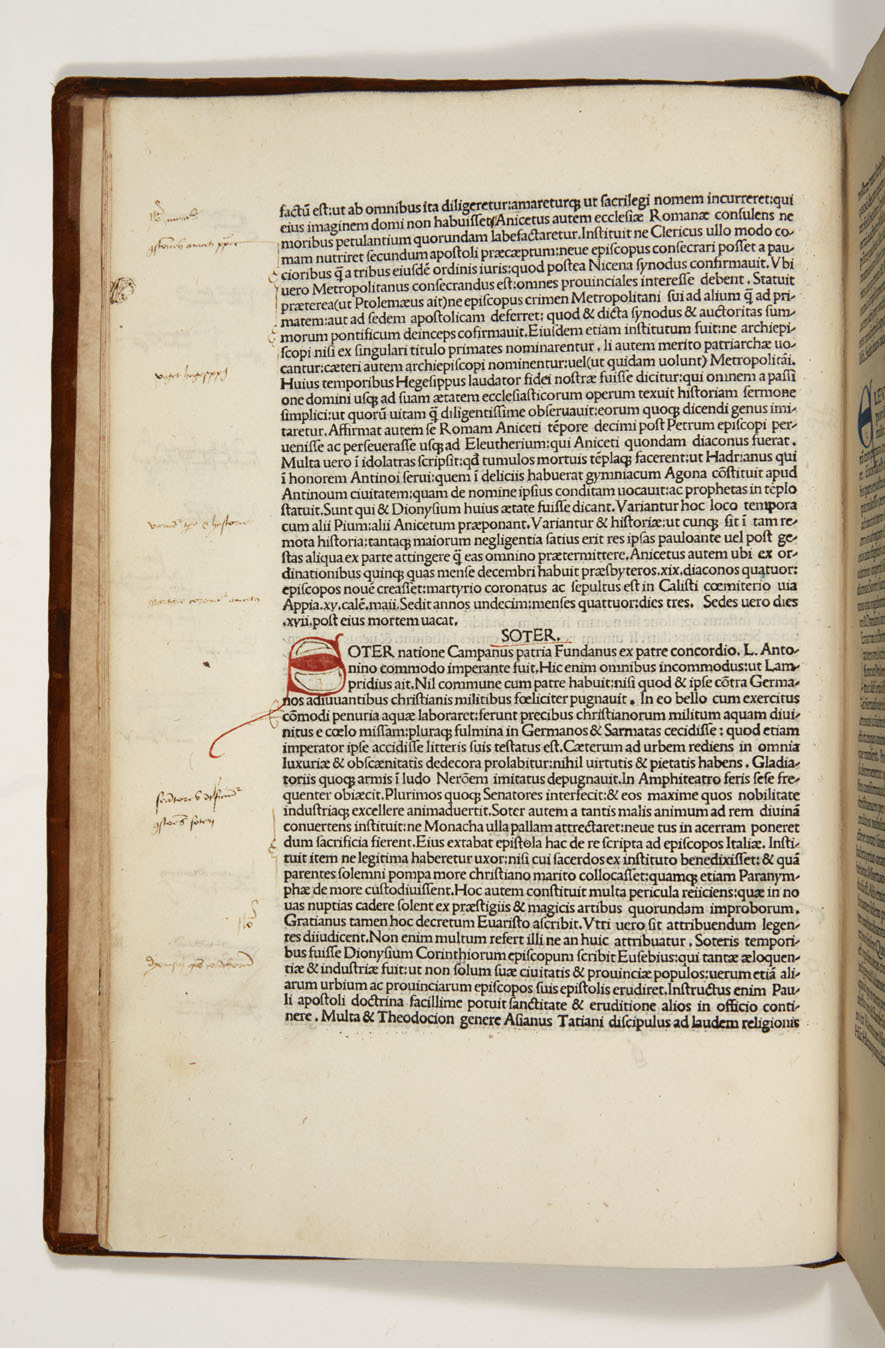 factū eſt:ut ab omnibus ita diligeretur:amareturqꝫ ut ſacrilegi nomem incurreret:qui
eius imaginem domi non habuiſſet. Anicetus autem eccleſiæ Romanæ conſulens ne
moribus petulantium quorundam labefactaretur.Inſtituit ne Clericus ullo modo co-
mam nutriret ſecundum apoſtoli præcæptum:neue epiſcopus conſecrari poſſet a pau-
cioribus q̄ a tribus eiuſdē ordinis iuris:quod poſtea Nicena ſynodus confirmauit.Vbi
uero Metropolitanus conſecrandus eſt:omnes prouinciales intereſſe debent. Statuit
præterea(ut Ptolemæus ait)ne epiſcopus crimen Metropolitani ſui ad alium q̄ ad pri-
matem:aut ad ſedem apoſtolicam deferret: quod & dicta ſynodus & auctoritas ſum-
morum pontificum deinceps cofirmauit.Eiuſdem etiam inſtitutum fuit:ne archiepi-
ſcopi niſi ex ſingulari titulo primates nominarentur, li autem merito patriarchæ uo-
cantur:cæteri autem archiepiſcopi nominentur:uel(ut quidam uolunt) Metropolitāi.
Huius temporibus Hegeſippus laudator fidei noſtræ fuiſſe dicitur:qui omnem a paſſi
one domini uſqꝫ ad ſuam ætatem eccleſiaſticorum operum texuit hiſtoriam ſermone
ſimplici:ut quorū uitam q̄ diligentiſſime obſeruauit:eorum quoqꝫ dicendi genus imi-
taretur.Affirmat autem ſe Romam Aniceti tēpore decimi poſt Petrum epiſcopi per-
ueniſſe ac perſeueraſſe uſqꝫ ad Eleutherium:qui Aniceti quondam diaconus fuerat.
Multa uero ī idolatras ſcripſit:qd̄ tumulos mortuis tēplaqꝫ facerent:ut Hadrianus qui
ī honorem Antinoi ſerui:quem ī deliciis habuerat gymniacum Agona cōſtituit apud
Antinoum ciuitatem:quam de nomine ipſius conditam uocauit:ac prophetas in tēplo
ſtatuit.Sunt qui & Dionyſium huius ætate fuiſſe dicant.Variantur hoc loco tempora
cum alii Pium:alii Anicetum præponant.Variantur & hiſtoriæ:ut cunqꝫ ſit ī tam re-
mota hiſtoria:tantaqꝫ maiorum negligentia ſatius erit res ipſas pauloante uel poſt ge-
ſtas aliqua ex parte attingere q̄ eas omnino prætermittere.Anicetus autem ubi ex or-
dinationibus quinqꝫ quas menſe decembri habuit præſbyteros.xix.diaconos quatuor:
epiſcopos nouē creaſſet:martyrio coronatus ac ſepultus eſt in Caliſti cœmiterio uia
Appia.xv.calē.maii.Sedit annos undecim:menſes quattuor:dies tres. Sedes uero dies
.xvii.poſt eius mortem uacat.
SOTER.
SOTER natione Campanus patria Fundanus ex patre concordio. L. Anto-
nino commodo imperante fuit.Hic enim omnibus incommodus:ut Lam-
pridius ait.Nil commune cum patre habuit:niſi quod & ipſe cōtra Germa-
nos adiuuantibus chriſtianis militibus fœliciter pugnauit. In eo bello cum exercitus
cōmodi penuria aquæ laboraret:ferunt precibus chriſtianorum militum aquam diui-
nitus e cœlo miſſam:pluraqꝫ fulmina in Germanos & Sarmatas cecidiſſe: quod etiam
imperator ipſe accidiſſe litteris ſuis teſtatus eſt.Cæterum ad urbem rediens in omnia
luxuriæ & obſcænitatis dedecora prolabitur:nihil uirtutis & pietatis habens. Gladia-
toriis quoqꝫ armis ī ludo Nerōem imitatus depugnauit.In Amphiteatro feris ſeſe fre-
quenter obiæcit.Plurimos quoqꝫ Senatores interfecit:& eos maxime quos nobilitate
induſtriaqꝫ excellere animaduertit.Soter autem a tantis malis animum ad rem diuinā
conuertens inſtituit:ne Monacha ulla pallam attrectaret:neue tus in acerram poneret
dum ſacrificia fierent.Eius extabat epiſtola hac de re ſcripta ad epiſcopos Italiæ. Inſti-
tuit item ne legitima haberetur uxor:niſi cui ſacerdos ex inſtituto benedixiſſet: & quā
parentes ſolemni pompa more chriſtiano marito collocaſſet:quamqꝫ etiam Paranym-
phæ de more cuſtodiuiſſent.Hoc autem conſtituit multa pericula reiiciens:quæ in no
uas nuptias cadere ſolent ex præſtigiis & magicis artibus quorundam improborum.
Gratianus tamen hoc decretum Euariſto aſcribit.Vtri uero ſit attribuendum legen-
tes diiudicent.Non enim multum refert illi ne an huic attribuatur. Soteris tempori-
bus fuiſſe Dionyſium Corinthiorum epiſcopum ſcribit Euſebius:qui tantæ æloquen-
tiæ & induſtriæ fuit:ut non ſolum ſuæ ciuitatis & prouinciæ populos:uerum etiā ali-
arum urbium ac prouinciarum epiſcopos ſuis epiſtolis erudiret.Inſtructus enim Pau-
li apoſtoli doctrina facillime potuit ſanctitate & eruditione alios in officio conti-
nere. Multa & Theodocion genere Aſianus Tatiani diſcipulus ad laudem religionis